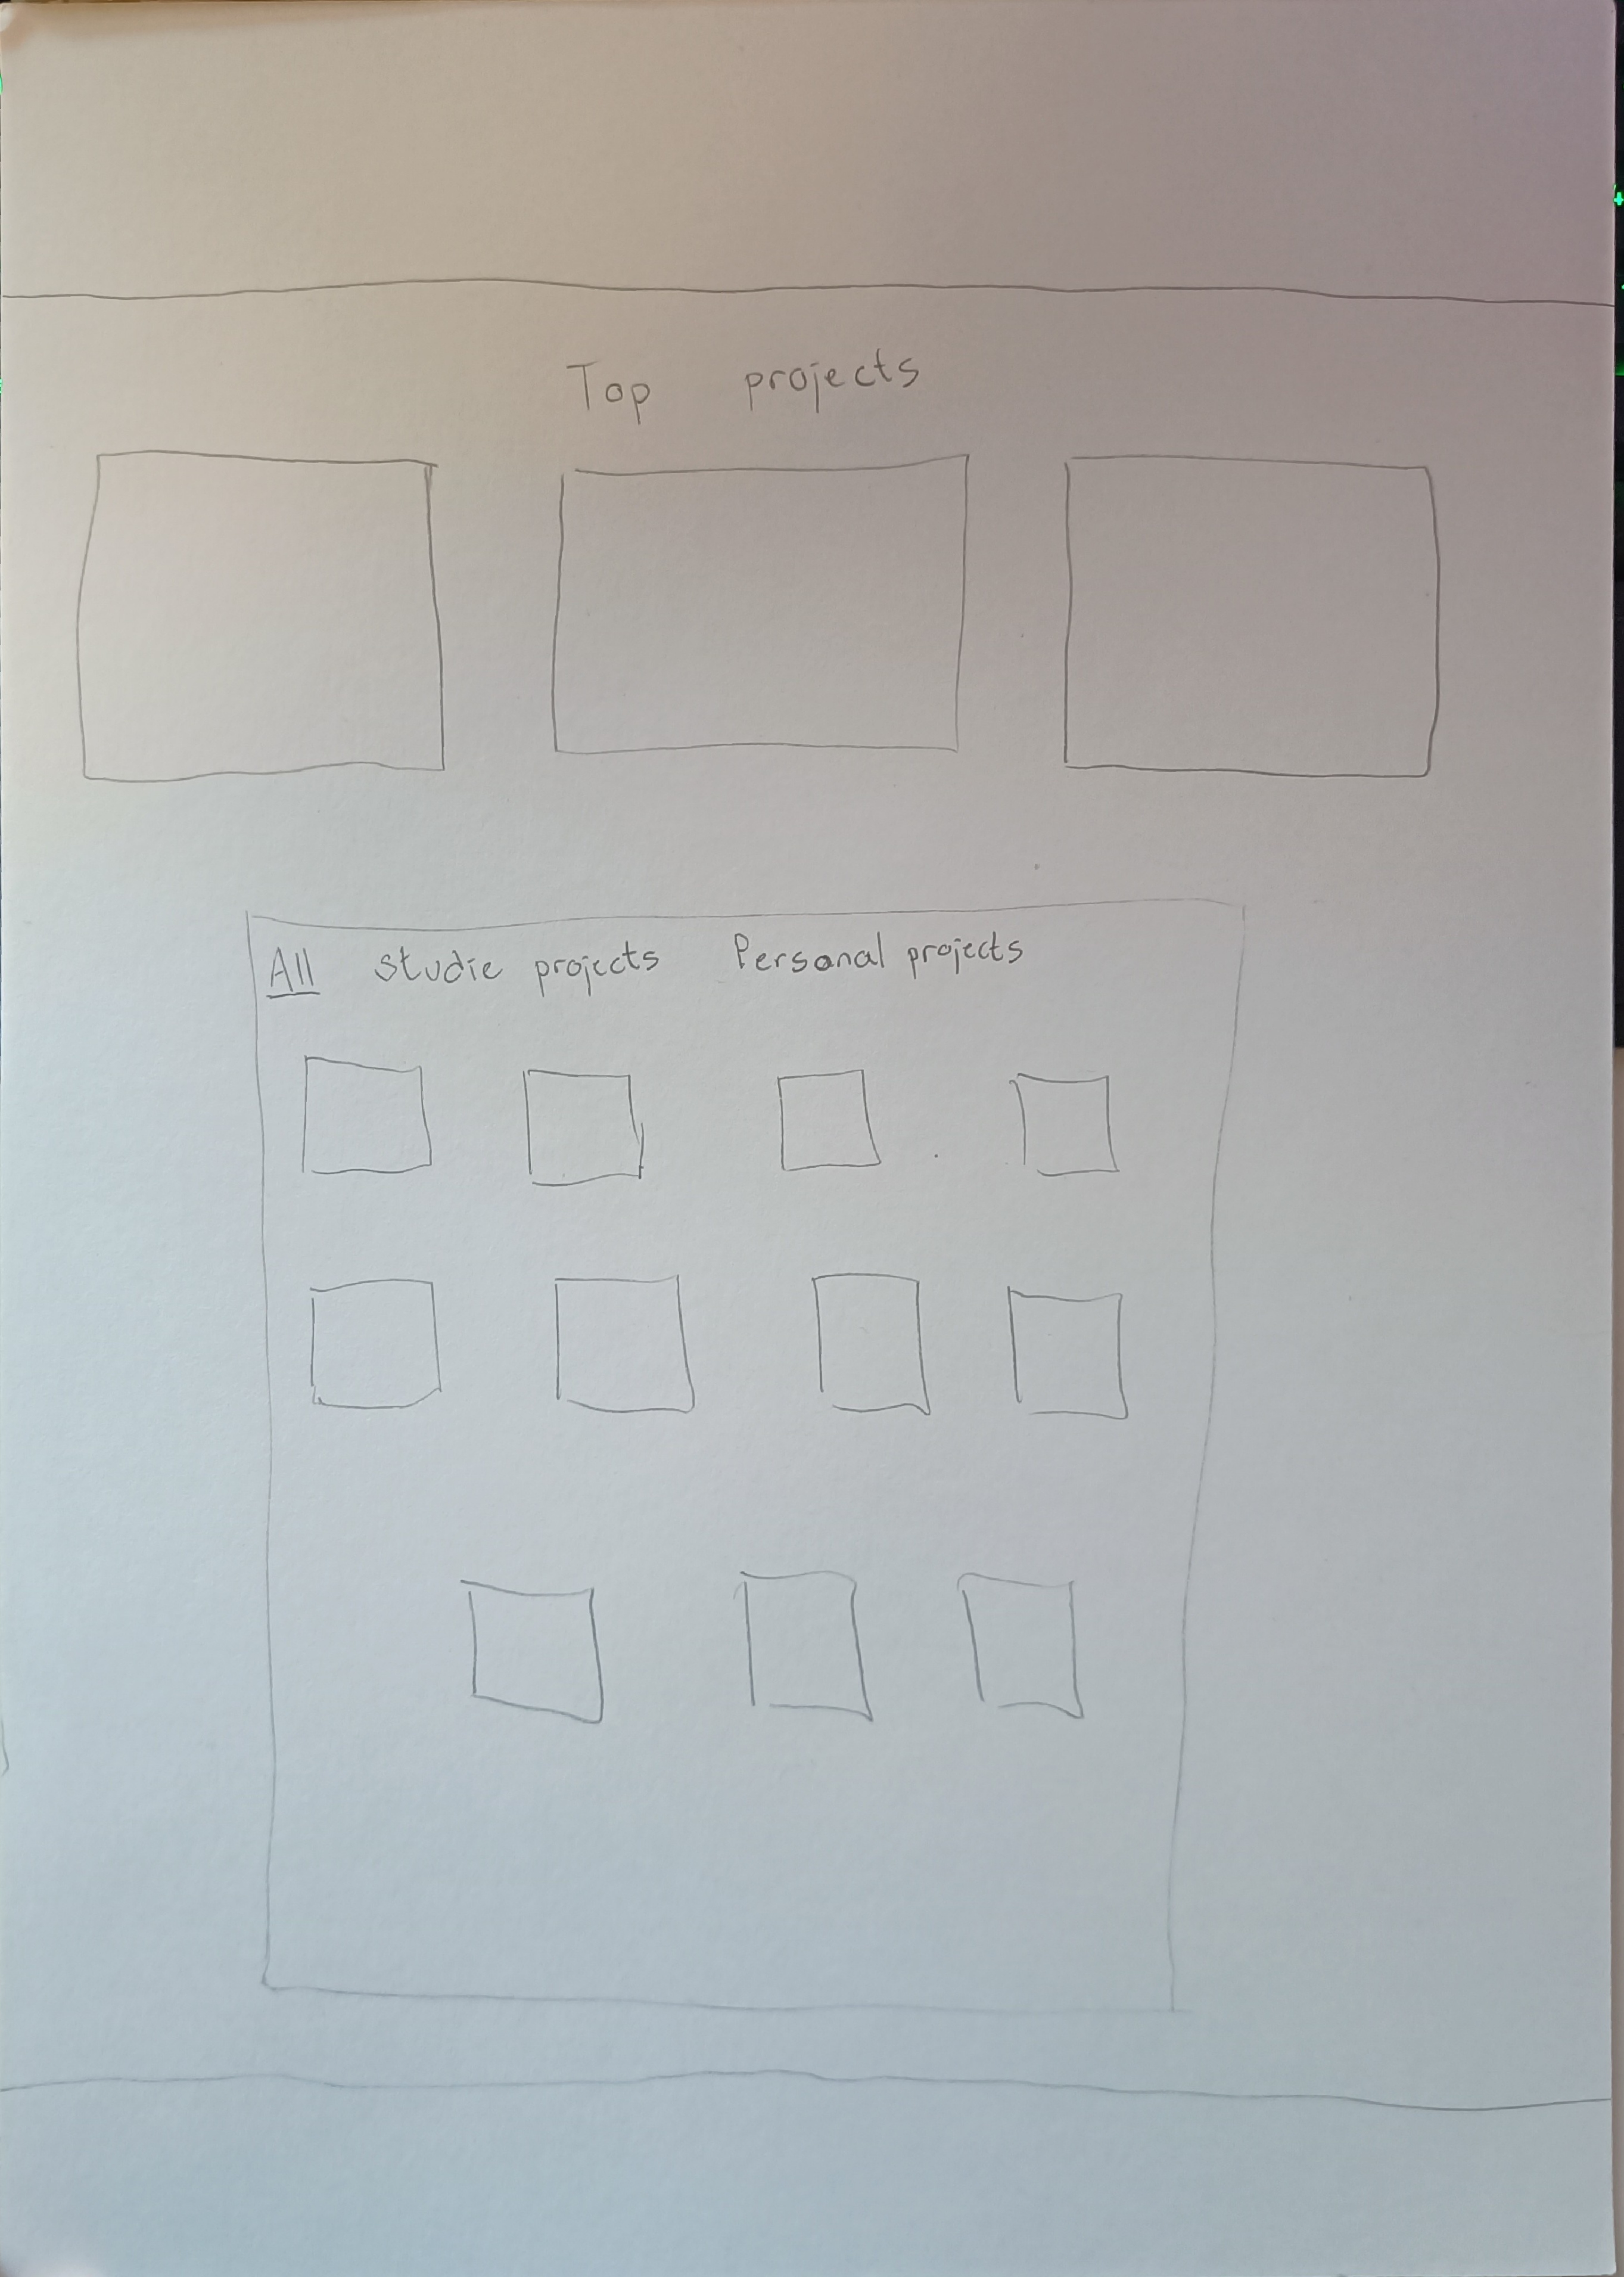 Top projects
All studie projects Personal projects